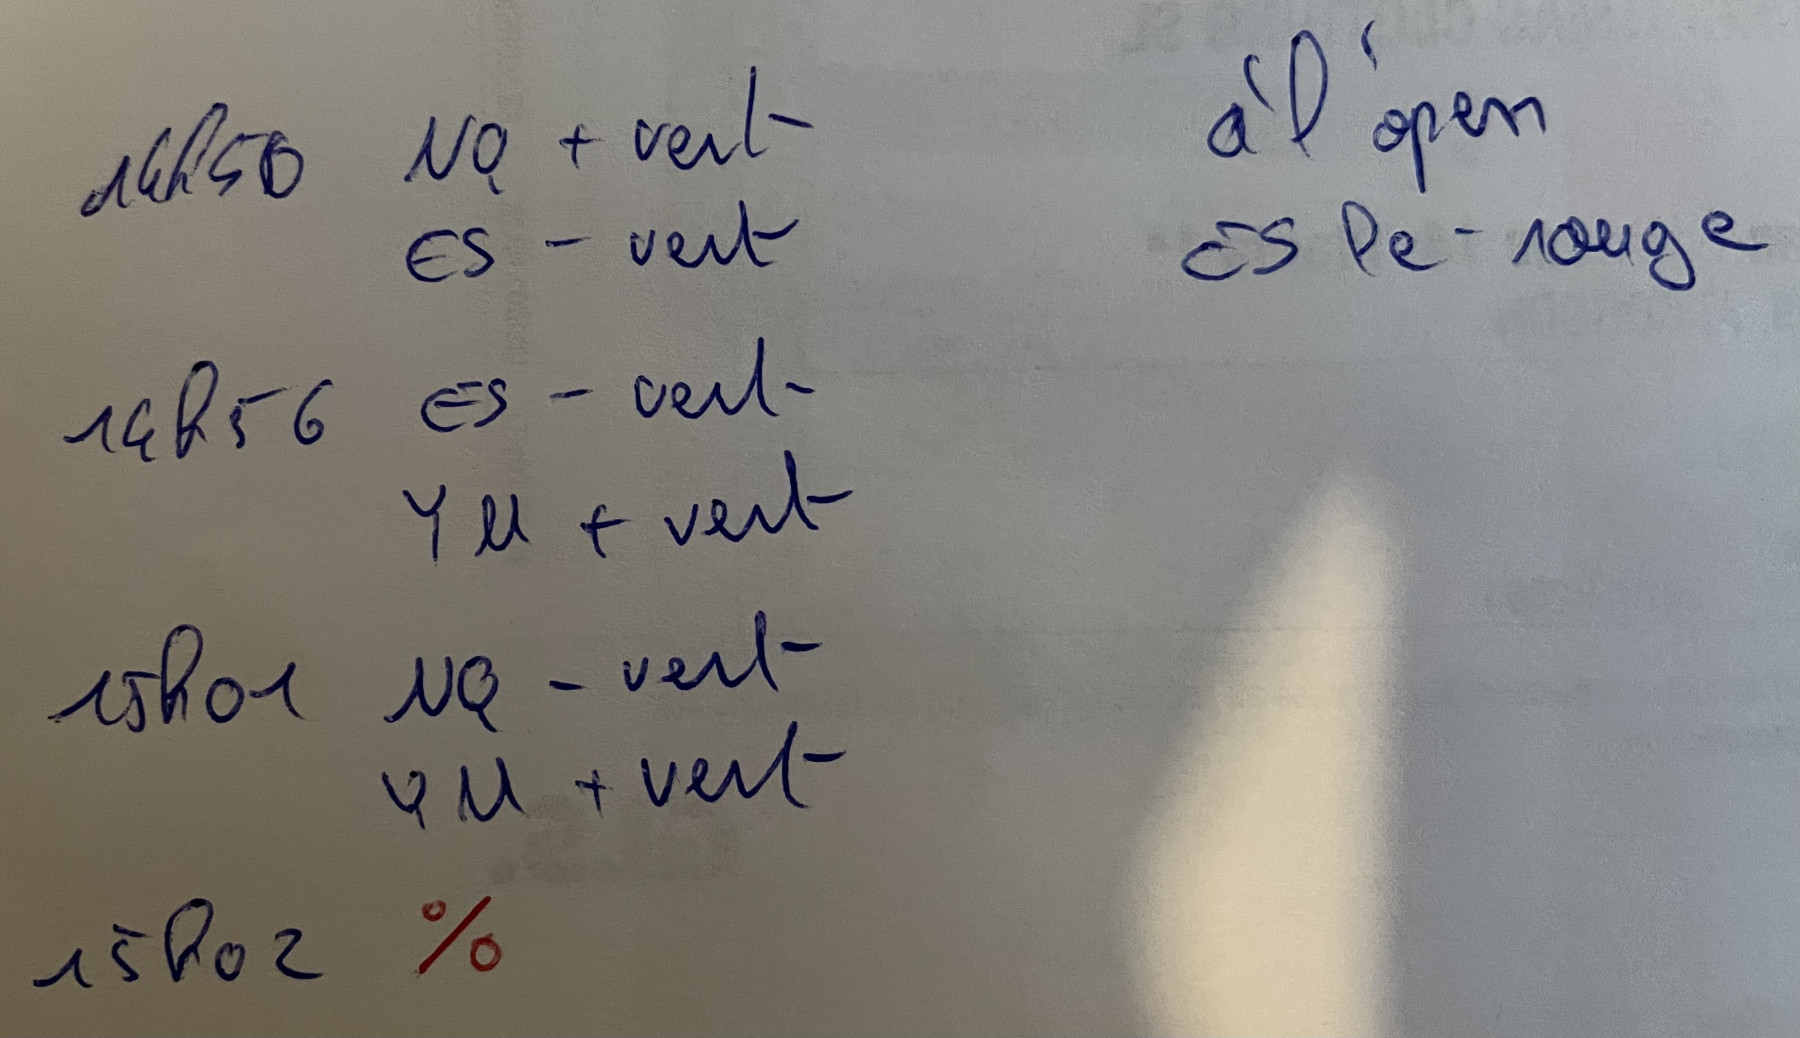 14h50 NQ + vert
ES - vert
à l'open
ES le - rouge
14h56 ES - vert
YM + vert
15h01 NQ - vert
YM + vert
15h02 %